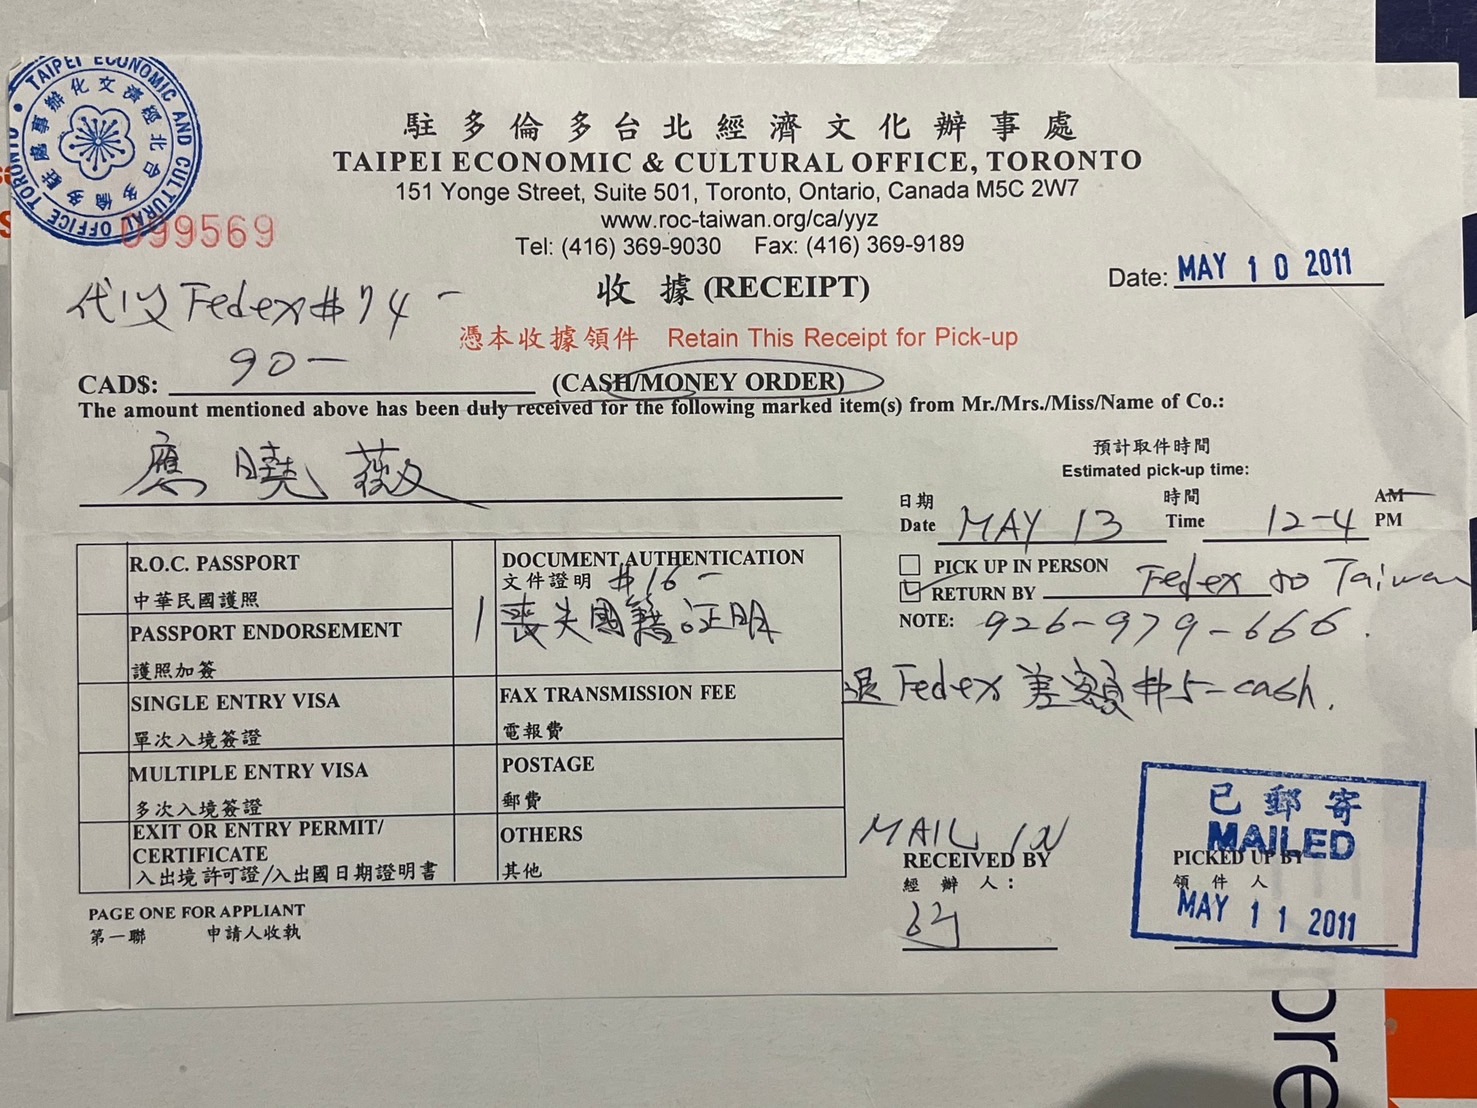 TAIPEI ECONOMIC AND CULTURAL OFFICE TORONTO
駐多倫多台北經濟文化辦事處
駐多倫多台北經濟文化辦事處
TAIPEI ECONOMIC & CULTURAL OFFICE, TORONTO
151 Yonge Street, Suite 501, Toronto, Ontario, Canada M5C 2W7
www.roc-taiwan.org/ca/yyz
Tel: (416) 369-9030 Fax: (416) 369-9189
099569
Date: MAY 10 2011
收 據 (RECEIPT)
代收 Fedex $74-
憑本收據領件 Retain This Receipt for Pick-up
CAD$: 90- (CASH/MONEY ORDER)
The amount mentioned above has been duly received for the following marked item(s) from Mr./Mrs./Miss/Name of Co.:
應曉薇
預計取件時間
Estimated pick-up time:
日期 時間 AM
Date MAY 13 Time 12-4 PM
PICK UP IN PERSON
RETURN BY Fedex to Taiwan
NOTE: 926-979-666.
退 Fedex 差額 $5- cash.
R.O.C. PASSPORT
中華民國護照
PASSPORT ENDORSEMENT
護照加簽
SINGLE ENTRY VISA
單次入境簽證
MULTIPLE ENTRY VISA
多次入境簽證
EXIT OR ENTRY PERMIT/
CERTIFICATE
入出境許可證/入出國日期證明書
DOCUMENT AUTHENTICATION
文件證明 $16-
1 喪失國籍証明
FAX TRANSMISSION FEE
電報費
POSTAGE
郵費
OTHERS
其他
MAIL IN
RECEIVED BY
經 辦 人：
已郵寄
MAILED
PICKED UP BY
領 件 人
MAY 11 2011
PAGE ONE FOR APPLIANT
第一聯 申請人收執
pre